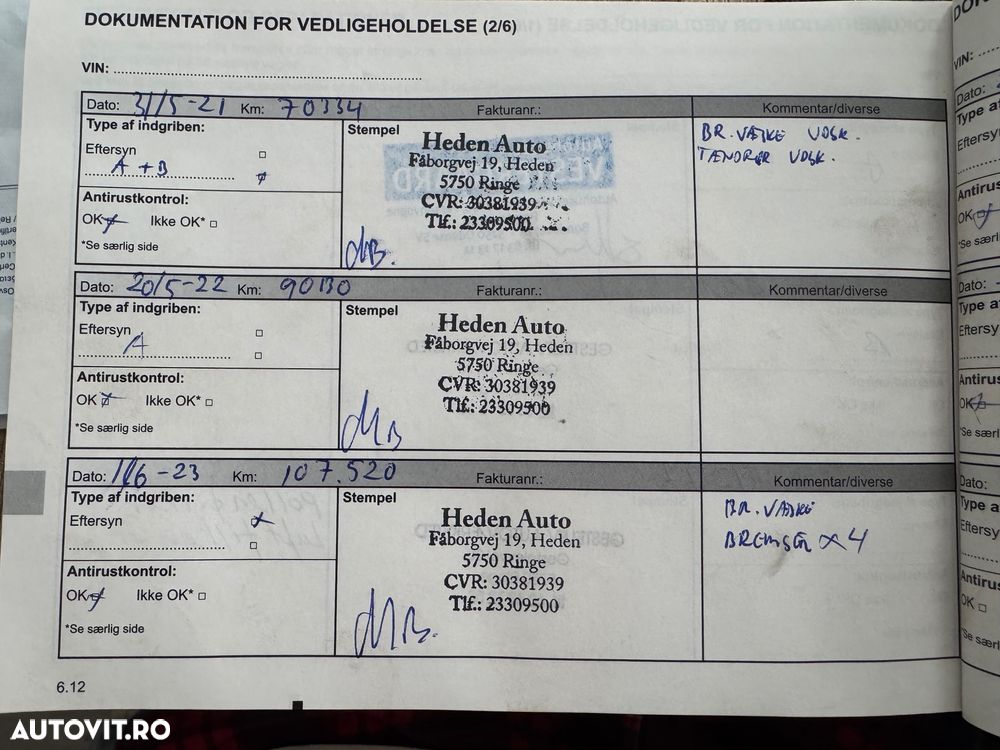 DOKUMENTATION FOR VEDLIGEHOLDELSE (2/6)
VIN:
Dato: 31/5-21 Km: 70334 Fakturanr.: Kommentar/diverse
Type af indgriben:
Eftersyn
A + B
Antirustkontrol:
OK Ikke OK*
*Se særlig side
Stempel
Heden Auto
Fåborgvej 19, Heden
5750 Ringe
CVR: 30381939
Tlf.: 23309500
BR. VÆSKE UDSK.
TÆNDRØR UDSK.
Dato: 20/5-22 Km: 90130 Fakturanr.: Kommentar/diverse
Type af indgriben:
Eftersyn
A
Antirustkontrol:
OK Ikke OK*
*Se særlig side
Stempel
Heden Auto
Fåborgvej 19, Heden
5750 Ringe
CVR: 30381939
Tlf.: 23309500
Dato: 1/6-23 Km: 107.520 Fakturanr.: Kommentar/diverse
Type af indgriben:
Eftersyn
Antirustkontrol:
OK Ikke OK*
*Se særlig side
Stempel
Heden Auto
Fåborgvej 19, Heden
5750 Ringe
CVR: 30381939
Tlf.: 23309500
BR. VÆSKE
BREMSER x4
6.12
AUTOVIT.RO